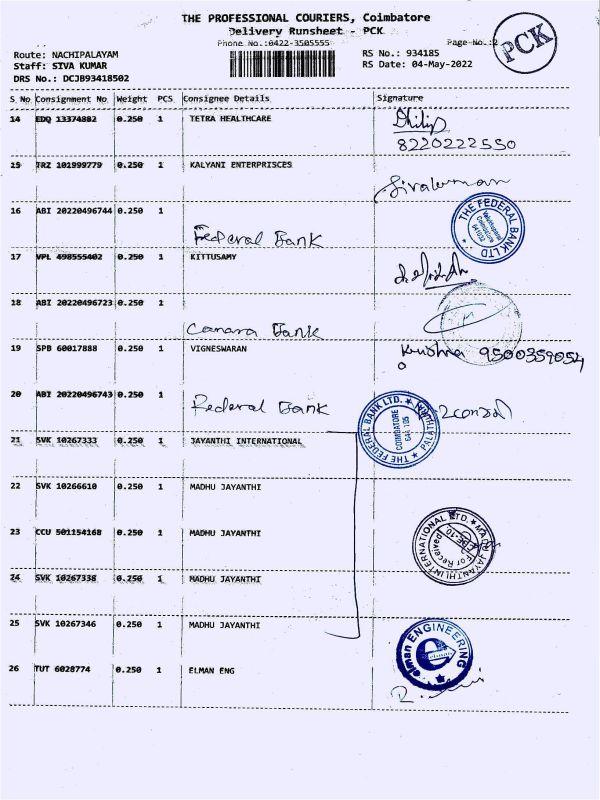 THE PROFESSIONAL COURIERS, Coimbatore
Delivery Runsheet - PCK
Phone No.:0422-3505555
Page No.:2
PCK
Route: NACHIPALAYAM
Staff: SIVA KUMAR
DRS No.: DCJB93418502
RS No.: 934185
RS Date: 04-May-2022
S No Consignment No Weight PCS Consignee Details Signature
14 EDQ 13374882 0.250 1 TETRA HEALTHCARE
Dhilip
8220222550
15 TRZ 101999779 0.250 1 KALYANI ENTERPRISCES
Sivakumar
16 ABI 20220496744 0.250 1
Federal Bank
THE FEDERAL BANK LTD
17 VPL 498555402 0.250 1 KITTUSAMY
18 ABI 20220496723 0.250 1
Canara Bank
19 SPB 60017888 0.250 1 VIGNESWARAN
Krishna 9500359054
20 ABI 20220496743 0.250 1
Federal Bank
THE FEDERAL BANK LTD.
COIMBATORE
21 SVK 10267333 0.250 1 JAYANTHI INTERNATIONAL
22 SVK 10266610 0.250 1 MADHU JAYANTHI
23 CCU 501154168 0.250 1 MADHU JAYANTHI
MADHU JAYANTHI INTERNATIONAL LTD.
For Received
24 SVK 10267338 0.250 1 MADHU JAYANTHI
25 SVK 10267346 0.250 1 MADHU JAYANTHI
elman ENGINEERING
e
26 TUT 6028774 0.250 1 ELMAN ENG